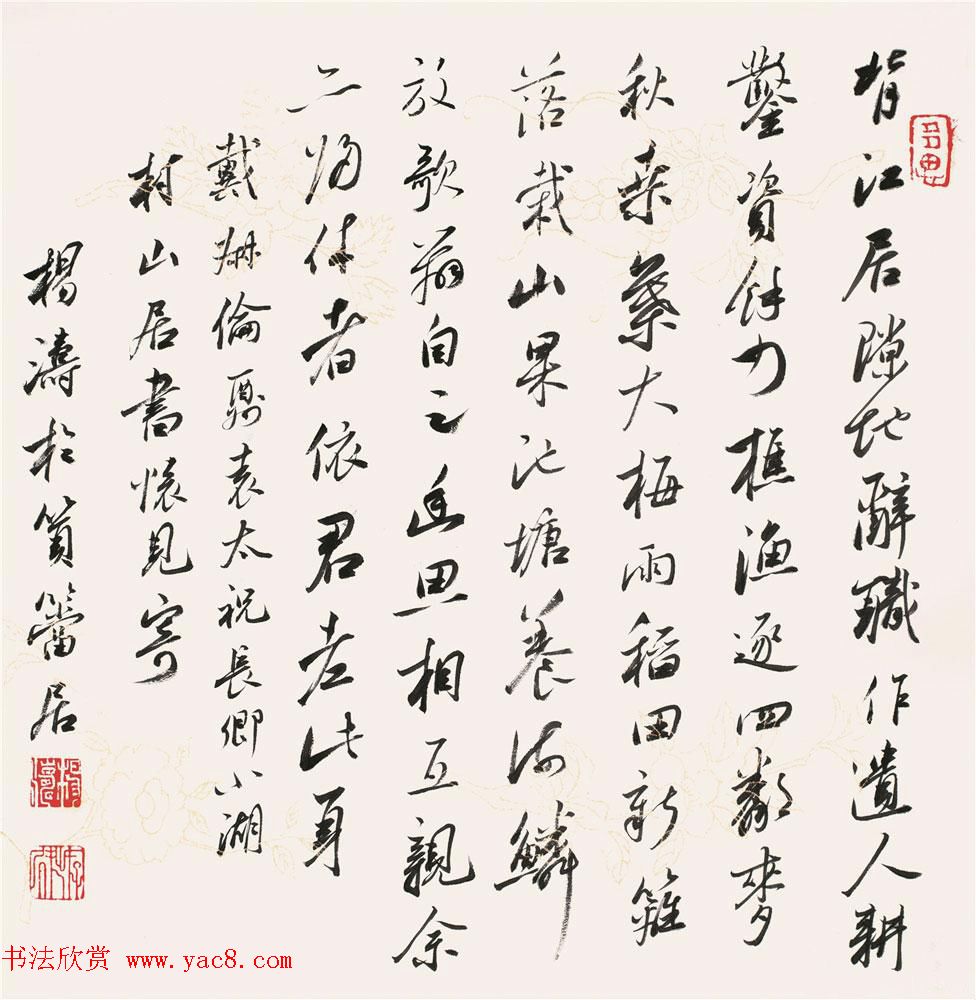 背江居隙地辭職作遺人耕
鑿資餘力樵漁逐四鄰麥
秋桑葉大梅雨稻田新籬
落栽山果池塘養鱗
放歌自足幽思相互親余
亦歸休者依君老此身
戴叔倫酬袁太祝長卿小湖
村山居書懷見寄
楊濤於篔簹居
书法欣赏 www.yac8.com